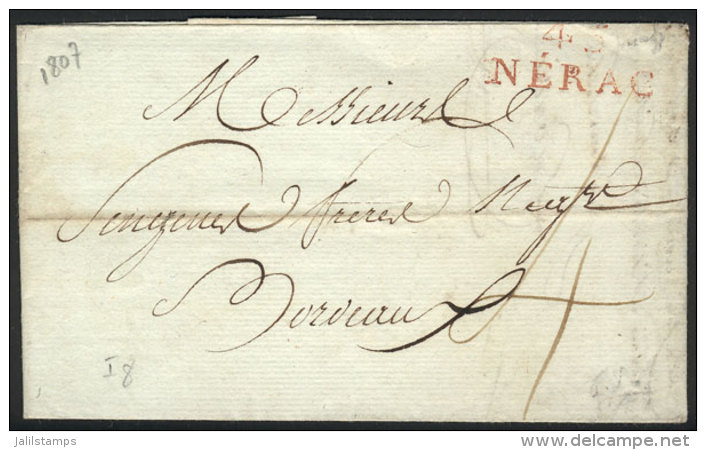 1807
NÉRAC
Messieurs
frères Negts
Bordeaux
4
I8
jalilstamps
www.delcampe.net